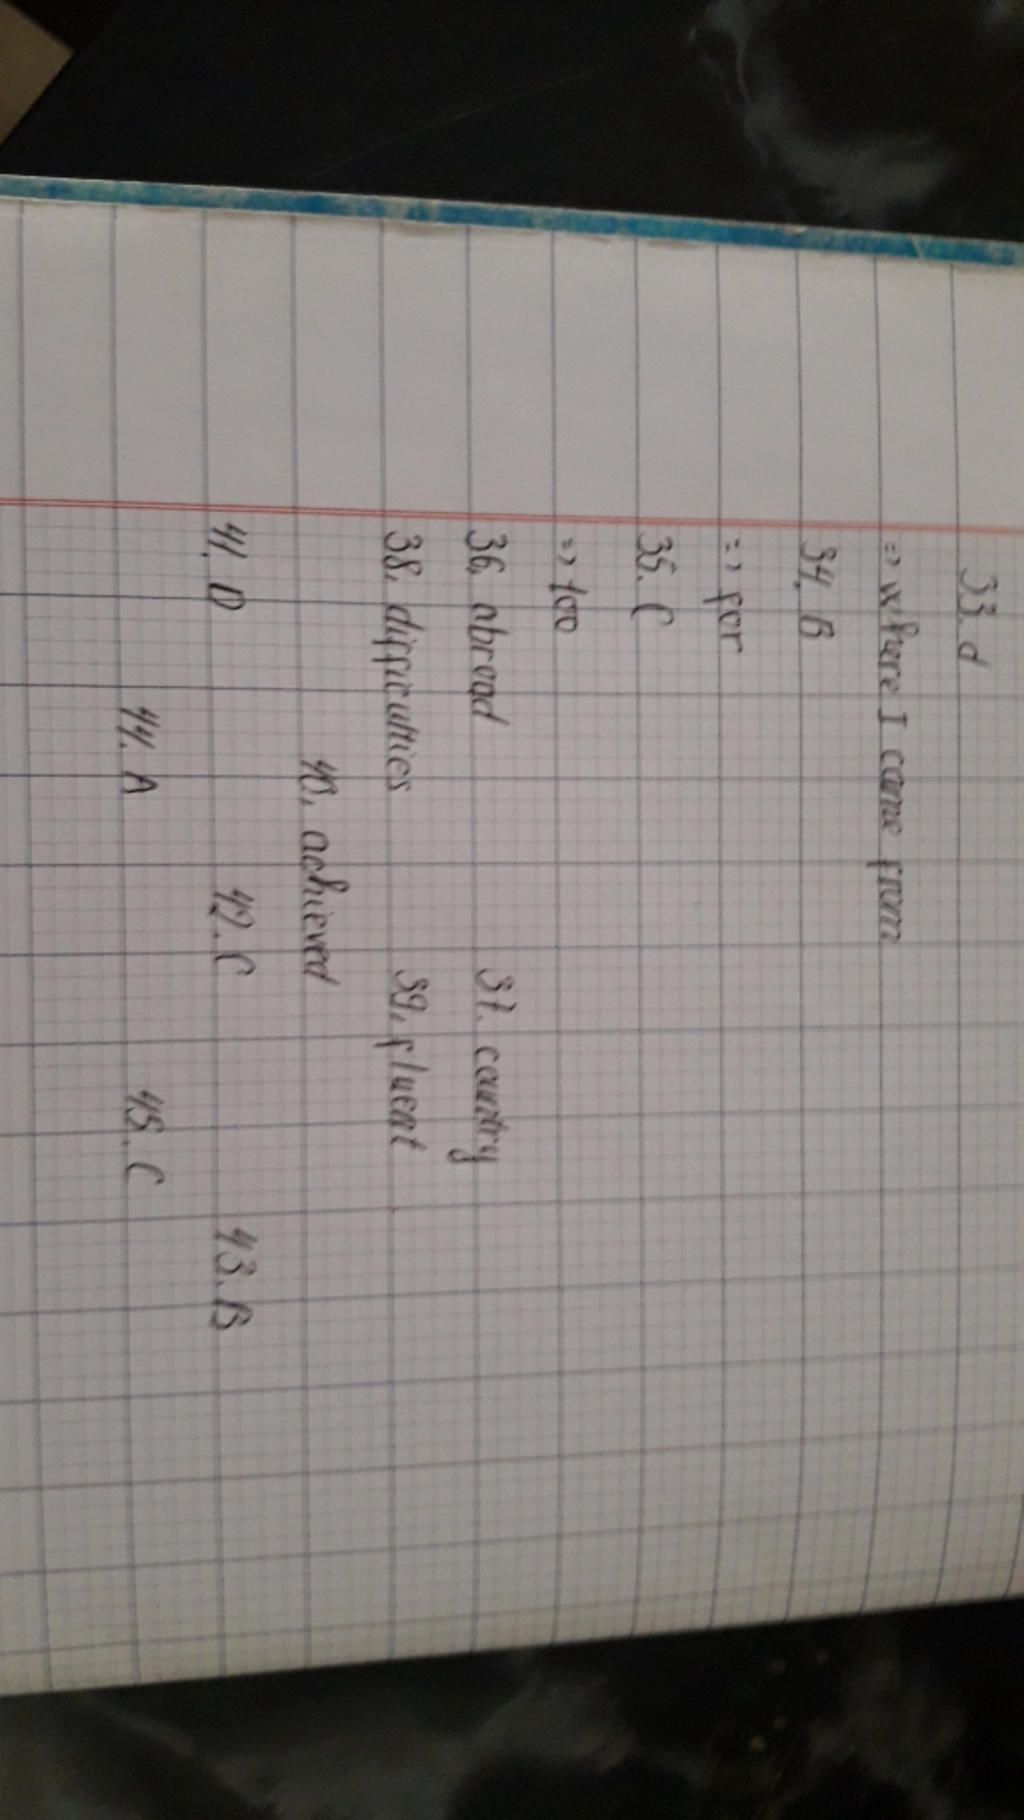 33. d
=> where I came from
34. B
=> for
35. C
=> too
36, abroad 37. country
38, difficulties 39, fluent
40, achieved
41, D 42. C 43. B
44. A 45. C